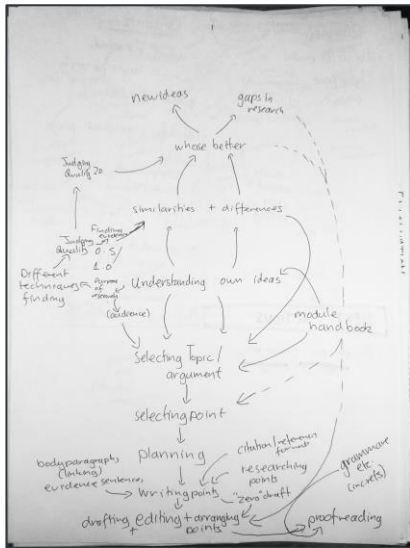 new ideas
gaps in
research
whose better
Judging
Quality 2.0
similarities + differences
Finding
evidence
Judging
Quality 0.5/
1.0
Different
techniques
finding
Purpose
of
Understanding own ideas
(audience)
module
handbook
Selecting Topic/
argument
selecting point
planning
citation/reference
formats
body paragraphs
(linking)
evidence sentences
researching
points
grammar
etc.
writing points
"zero" draft
drafting + editing + arranging
points
proofreading